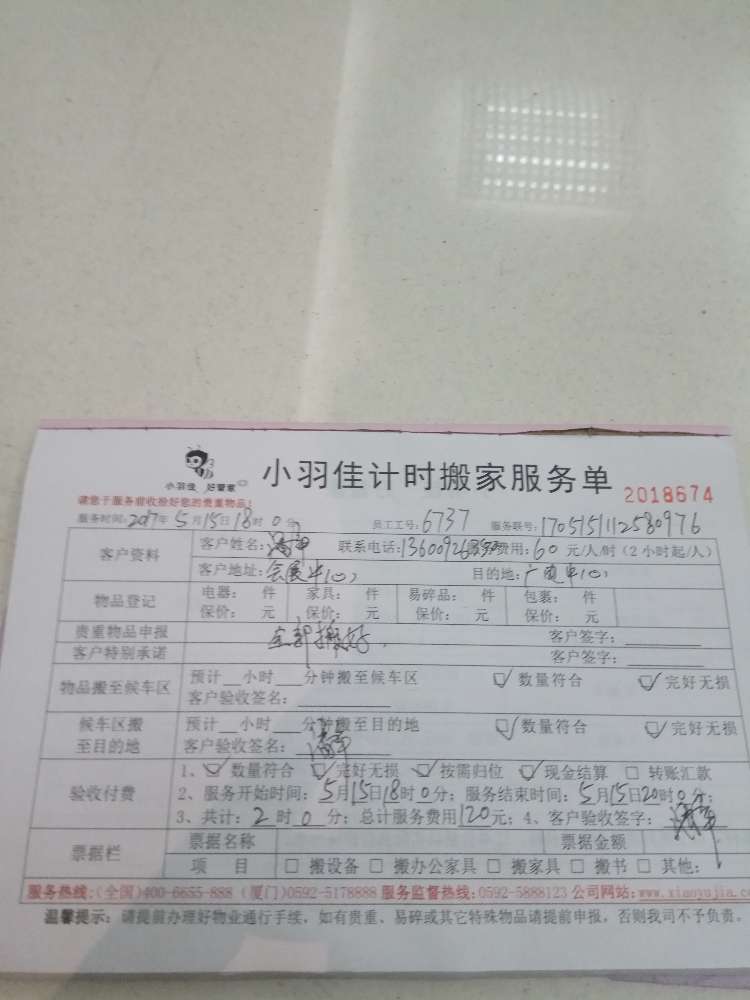 小羽佳 好管家
小羽佳计时搬家服务单
2018674
请您于服务前收捡好您的贵重物品！
服务时间：2017年5月15日18时0分 员工工号：6737 服务联号：170515111258 0976
客户资料
客户姓名： 联系电话：1360092 服务费用：60元/人/时（2小时起/人）
客户地址：会展中心 目的地：广电中心
物品登记
电器： 件 家具： 件 易碎品： 件 包裹： 件
保价： 元 保价： 元 保价： 元 保价： 元
贵重物品申报 全部搬好. 客户签字：
客户特别承诺 客户签字：
物品搬至候车区
预计__小时__分钟搬至候车区 ☑数量符合 ☑完好无损
客户验收签名：
候车区搬至目的地
预计__小时__分钟搬至目的地 ☑数量符合 ☑完好无损
客户验收签名：
验收付费
1、☑数量符合 ☑完好无损 ☑按需归位 ☑现金结算 □转账汇款
2、服务开始时间：5月15日18时0分；服务结束时间：5月15日20时0分；
3、共计：2时0分；总计服务费用120元；4、客户验收签字：
票据栏
票据名称 票据金额
项 目 □搬设备 □搬办公家具 □搬家具 □搬书 □其他：
服务热线：（全国）400-6655-888（厦门）0592-5178888 服务监督热线：0592-5888123 公司网站：www.xiaoyujia.co
温馨提示：请提前办理好物业通行手续，如有贵重、易碎或其它特殊物品请提前申报，否则我司不予负责。